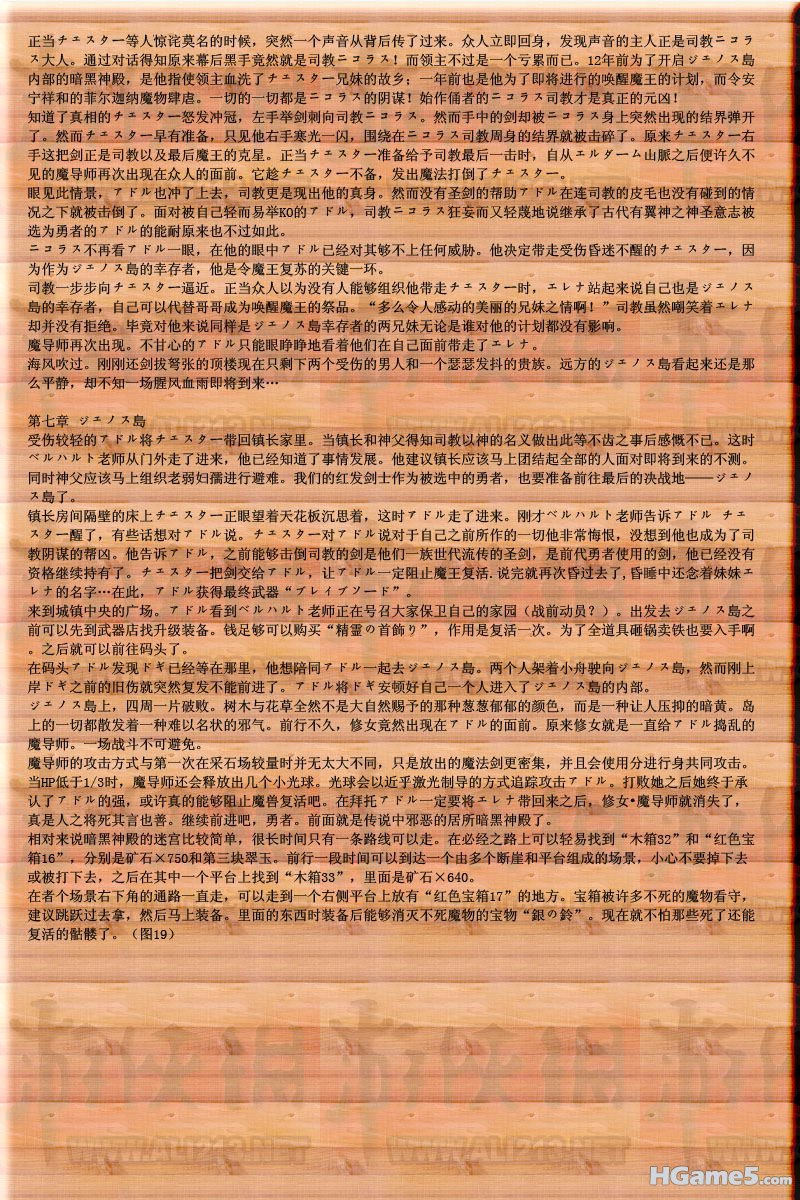 正当チェスター等人惊诧莫名的时候，突然一个声音从背后传了过来。众人立即回身，发现声音的主人正是司教ニコラ
ス大人。通过对话得知原来幕后黑手竟然就是司教ニコラス！而领主不过是一个亏累而已。12年前为了开启ジェノス島
内部的暗黑神殿，是他指使领主血洗了チェスター兄妹的故乡；一年前也是他为了即将进行的唤醒魔王的计划，而令安
宁祥和的菲尔迦纳魔物肆虐。一切的一切都是ニコラス的阴谋！始作俑者的ニコラス司教才是真正的元凶！
知道了真相的チェスター怒发冲冠，左手举剑刺向司教ニコラス。然而手中的剑却被ニコラス身上突然出现的结界弹开
了。然而チェスター早有准备，只见他右手寒光一闪，围绕在ニコラス司教周身的结界就被击碎了。原来チェスター右
手这把剑正是司教以及最后魔王的克星。正当チェスター准备给予司教最后一击时，自从エルダーム山脉之后便许久不
见的魔导师再次出现在众人的面前。它趁チェスター不备，发出魔法打倒了チェスター。
眼见此情景，アドル也冲了上去，司教更是现出他的真身。然而没有圣剑的帮助アドル在连司教的皮毛也没有碰到的情
况之下就被击倒了。面对被自己轻而易举KO的アドル，司教ニコラス狂妄而又轻蔑地说继承了古代有翼神之神圣意志被
选为勇者的アドル的能耐原来也不过如此。
ニコラス不再看アドル一眼，在他的眼中アドル已经对其够不上任何威胁。他决定带走受伤昏迷不醒的チェスター，因
为作为ジェノス島的幸存者，他是令魔王复苏的关键一环。
司教一步步向チェスター逼近。正当众人以为没有人能够组织他带走チェスター时，エレナ站起来说自己也是ジェノス
島的幸存者，自己可以代替哥哥成为唤醒魔王的祭品。“多么令人感动的美丽的兄妹之情啊！”司教虽然嘲笑着エレナ
却并没有拒绝。毕竟对他来说同样是ジェノス島幸存者的两兄妹无论是谁对他的计划都没有影响。
魔导师再次出现。不甘心的アドル只能眼睁睁地看着他们在自己面前带走了エレナ。
海风吹过。刚刚还剑拔弩张的顶楼现在只剩下两个受伤的男人和一个瑟瑟发抖的贵族。远方的ジェノス島看起来还是那
么平静，却不知一场腥风血雨即将到来…
第七章 ジェノス島
受伤较轻的アドル将チェスター带回镇长家里。当镇长和神父得知司教以神的名义做出此等不齿之事后感慨不已。这时
ベルハルト老师从门外走了进来，他已经知道了事情发展。他建议镇长应该马上团结起全部的人面对即将到来的不测。
同时神父应该马上组织老弱妇孺进行避难。我们的红发剑士作为被选中的勇者，也要准备前往最后的决战地——ジェノ
ス島了。
镇长房间隔壁的床上チェスター正眼望着天花板沉思着，这时アドル走了进来。刚才ベルハルト老师告诉アドル チェ
スター醒了，有些话想对アドル说。チェスター对アドル说对于自己之前所作的一切他非常悔恨，没想到他也成为了司
教阴谋的帮凶。他告诉アドル，之前能够击倒司教的剑是他们一族世代流传的圣剑，是前代勇者使用的剑，他已经没有
资格继续持有了。チェスター把剑交给アドル，让アドル一定阻止魔王复活.说完就再次昏过去了,昏睡中还念着妹妹エ
レナ的名字…在此，アドル获得最终武器“ブレイブソード”。
来到城镇中央的广场。アドル看到ベルハルト老师正在号召大家保卫自己的家园（战前动员？）。出发去ジェノス島之
前可以先到武器店找升级装备。钱足够可以购买“精霊の首飾り”，作用是复活一次。为了全道具砸锅卖铁也要入手啊
。之后就可以前往码头了。
在码头アドル发现ドギ已经等在那里，他想陪同アドル一起去ジェノス島。两个人架着小舟驶向ジェノス島，然而刚上
岸ドギ之前的旧伤就突然复发不能前进了。アドル将ドギ安顿好自己一个人进入了ジェノス島的内部。
ジェノス島上，四周一片破败。树木与花草全然不是大自然赐予的那种葱葱郁郁的颜色，而是一种让人压抑的暗黄。岛
上的一切都散发着一种难以名状的邪气。前行不久，修女竟然出现在アドル的面前。原来修女就是一直给アドル捣乱的
魔导师。一场战斗不可避免。
魔导师的攻击方式与第一次在采石场较量时并无太大不同，只是放出的魔法剑更密集，并且会使用分进行身共同攻击。
当HP低于1/3时，魔导师还会释放出几个小光球。光球会以近乎激光制导的方式追踪攻击アドル。打败她之后她终于承
认了アドル的强，或许真的能够阻止魔兽复活吧。在拜托アドル一定要将エレナ带回来之后，修女•魔导师就消失了，
真是人之将死其言也善。继续前进吧，勇者。前面就是传说中邪恶的居所暗黑神殿了。
相对来说暗黑神殿的迷宫比较简单，很长时间只有一条路线可以走。在必经之路上可以轻易找到“木箱32”和“红色宝
箱16”，分别是矿石×750和第三块翠玉。前行一段时间可以到达一个由多个断崖和平台组成的场景，小心不要掉下去
或被打下去，之后在其中一个平台上找到“木箱33”，里面是矿石×640。
在者个场景右下角的通路一直走，可以走到一个右侧平台上放有“红色宝箱17”的地方。宝箱被许多不死的魔物看守，
建议跳跃过去拿，然后马上装备。里面的东西时装备后能够消灭不死魔物的宝物“銀の鈴”。现在就不怕那些死了还能
复活的骷髅了。（图19）
游侠网
WWW.ALI213.NET
HGame5.com